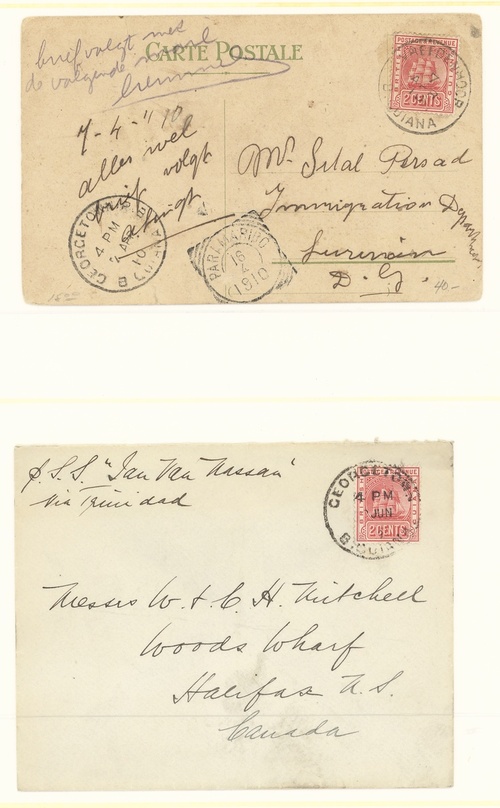 brief volgt met
de volgende mail
CARTE POSTALE
7-4-"10
alles wel
brief volgt
Mr. Sital Persad
Immigration Departement
Surinam
D. G.
POSTAGE & REVENUE
BRITISH
GUIANA
2 CENTS
GEORGETOWN
4 PM
7 AP
10
PARAMARIBO
16
4
1910
15.00
40.-
p S.S. "Jan Van Nassau"
via Trinidad
GEORGETOWN
4 PM
JUN
B. GUIANA
2 CENTS
Messrs W. & C. H. Mitchell
Woods Wharf
Halifax N.S.
Canada